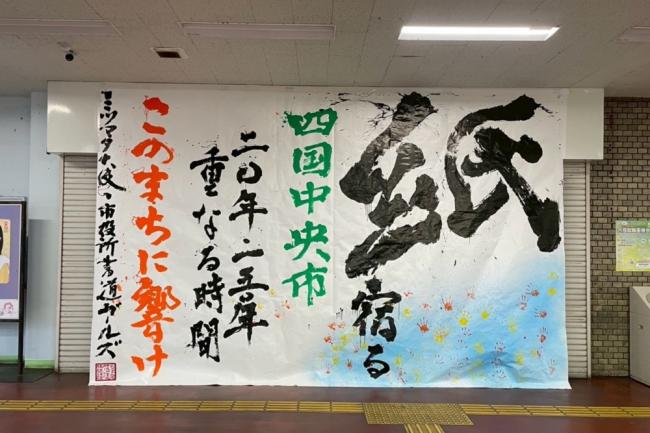 紙
宿る
四国中央市
二〇年・二五年
重なる時間
このまちに響け
ミツマタ大使・市役所書道ガールズ